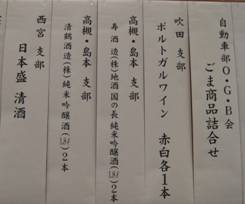 自動車部O・G・B会
ごま商品詰合せ
吹田 支部
ポルトガルワイン 赤白各1本
高槻・島本 支部
寿酒造(株)地酒国の長純米吟醸酒(1.8ℓ)2本
高槻・島本 支部
清鶴酒造(株)純米吟醸酒(1.8ℓ)2本
西宮 支部
日本盛 清酒